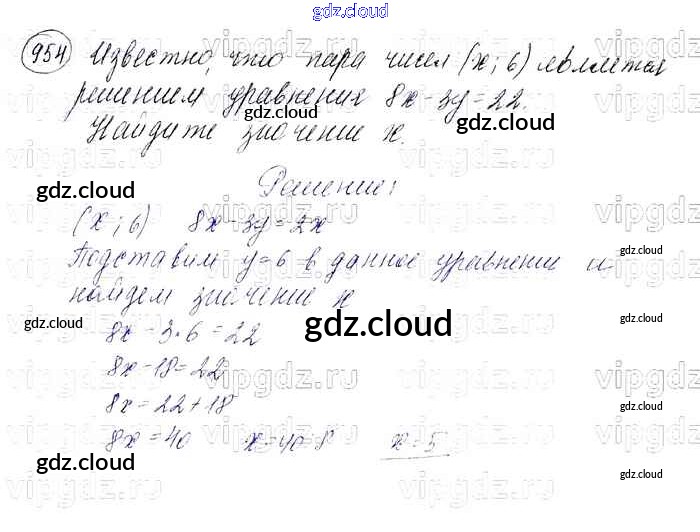 gdz.cloud
gdz.cloud
954 Известно, что пара чисел (x; 6) является
решением уравнения 8x - 3y = 22.
Найдите значение x.
gdz.cloud
gdz.cloud
Решение:
(x; 6) 8x - 3y = 2x
gdz.cloud
Подставим y = 6 в данное уравнение и
найдем значение x
8x - 3 · 6 = 22
gdz.cloud
gdz.cloud
gdz.cloud
8x - 18 = 22
8x = 22 + 18
gdz.cloud
8x = 40 x = 40 : 8 x = 5
gdz.cloud
gdz.cloud
gdz.cloud